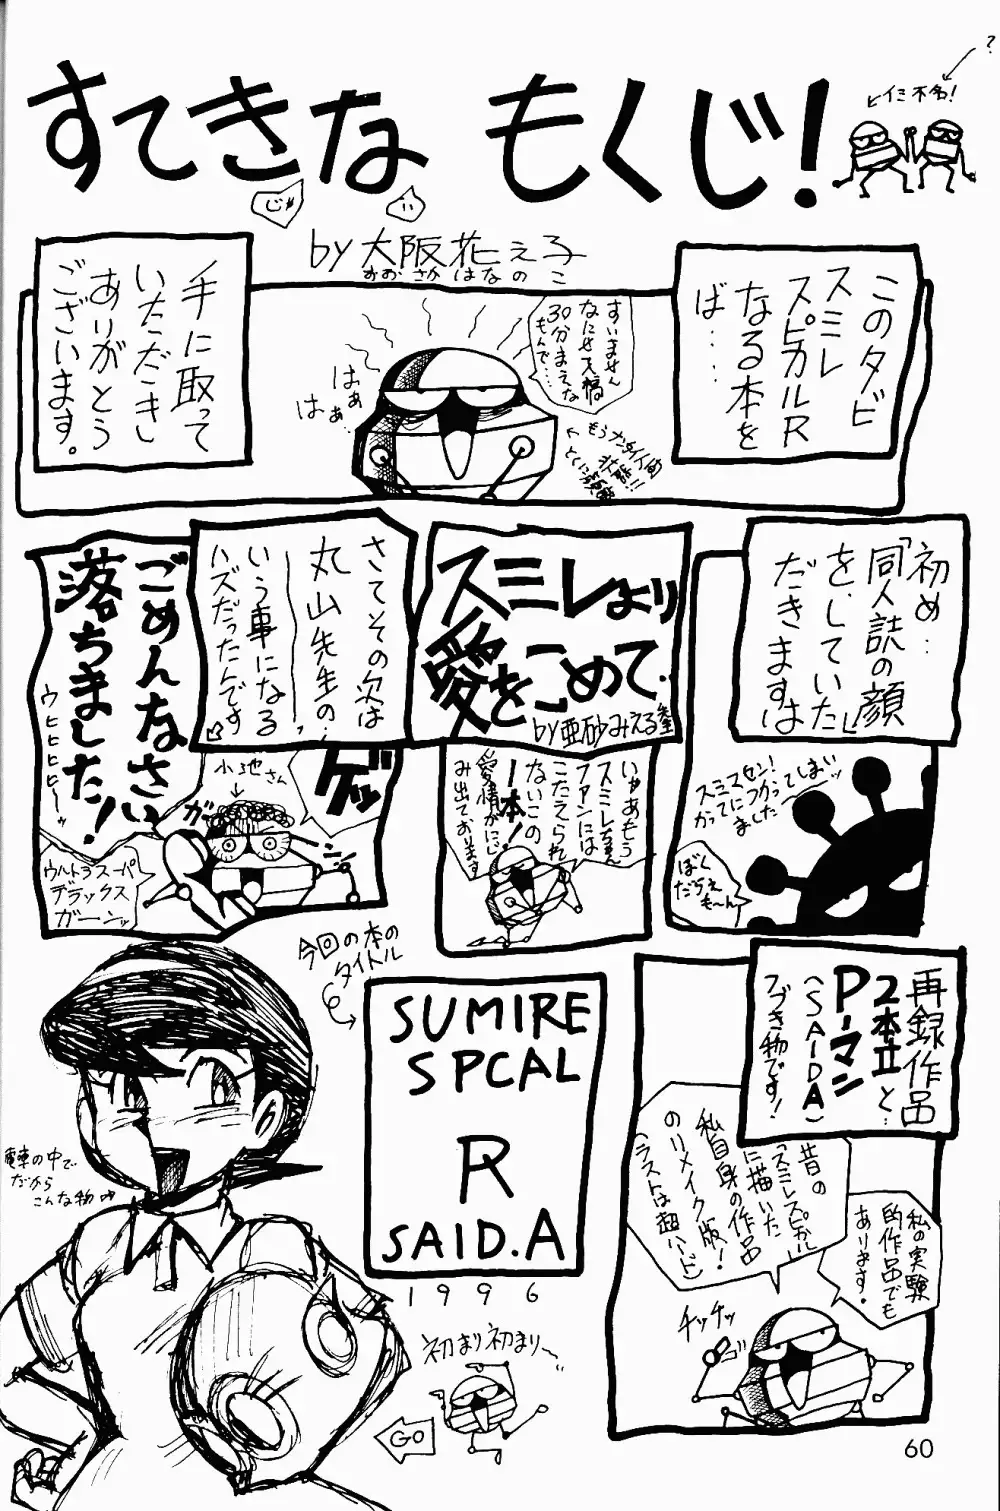 ?
ヒイミ不名!
すてきな もくじ!
じゃ
い
by 大阪花え子
おおさかはなのこ
このタビ
スミレ
スピカルR
なる本を
ば…
手に取って
いただき
ありがとう
ございます。
すいません
なにせ〆切
30分まえな
もんで…
はぁ
はぁ…
初め…
「同人誌の顔」
をしていた
だきますは
スミマセン!
かってにつかってしまいッ
ました
ぼく
だちえ
も〜ん
スミレより
愛をこめて.
by亜砂みえる
いやあもう
スミレちゃん
ファンには
こたえられ
ないこの
一本!
愛情がにじ
み出ております
さてその次は
丸山先生の…
という事になる
ハズだったんです
が
ごめんなさい
落ちました!
ウヒヒヒヒ〜ッ
ゲッ
小池さん
ガ
ウルトラスーパー
デラックス
ガーンッ
再録作品
2本立と、
P-マン
(SAIDA)
つづき物です!
昔の
「スミレスピカル」
に描いた
私自身の作品
のリメイク版!
(ラストは超ハード)
私の実験
的作品でも
あります。
チッチッ
今回の本の
タイトル
SUMIRE
SPCAL
R
SAID.A
1996
電車の中で
だから
こんな物
初まり初まり〜
GO
60